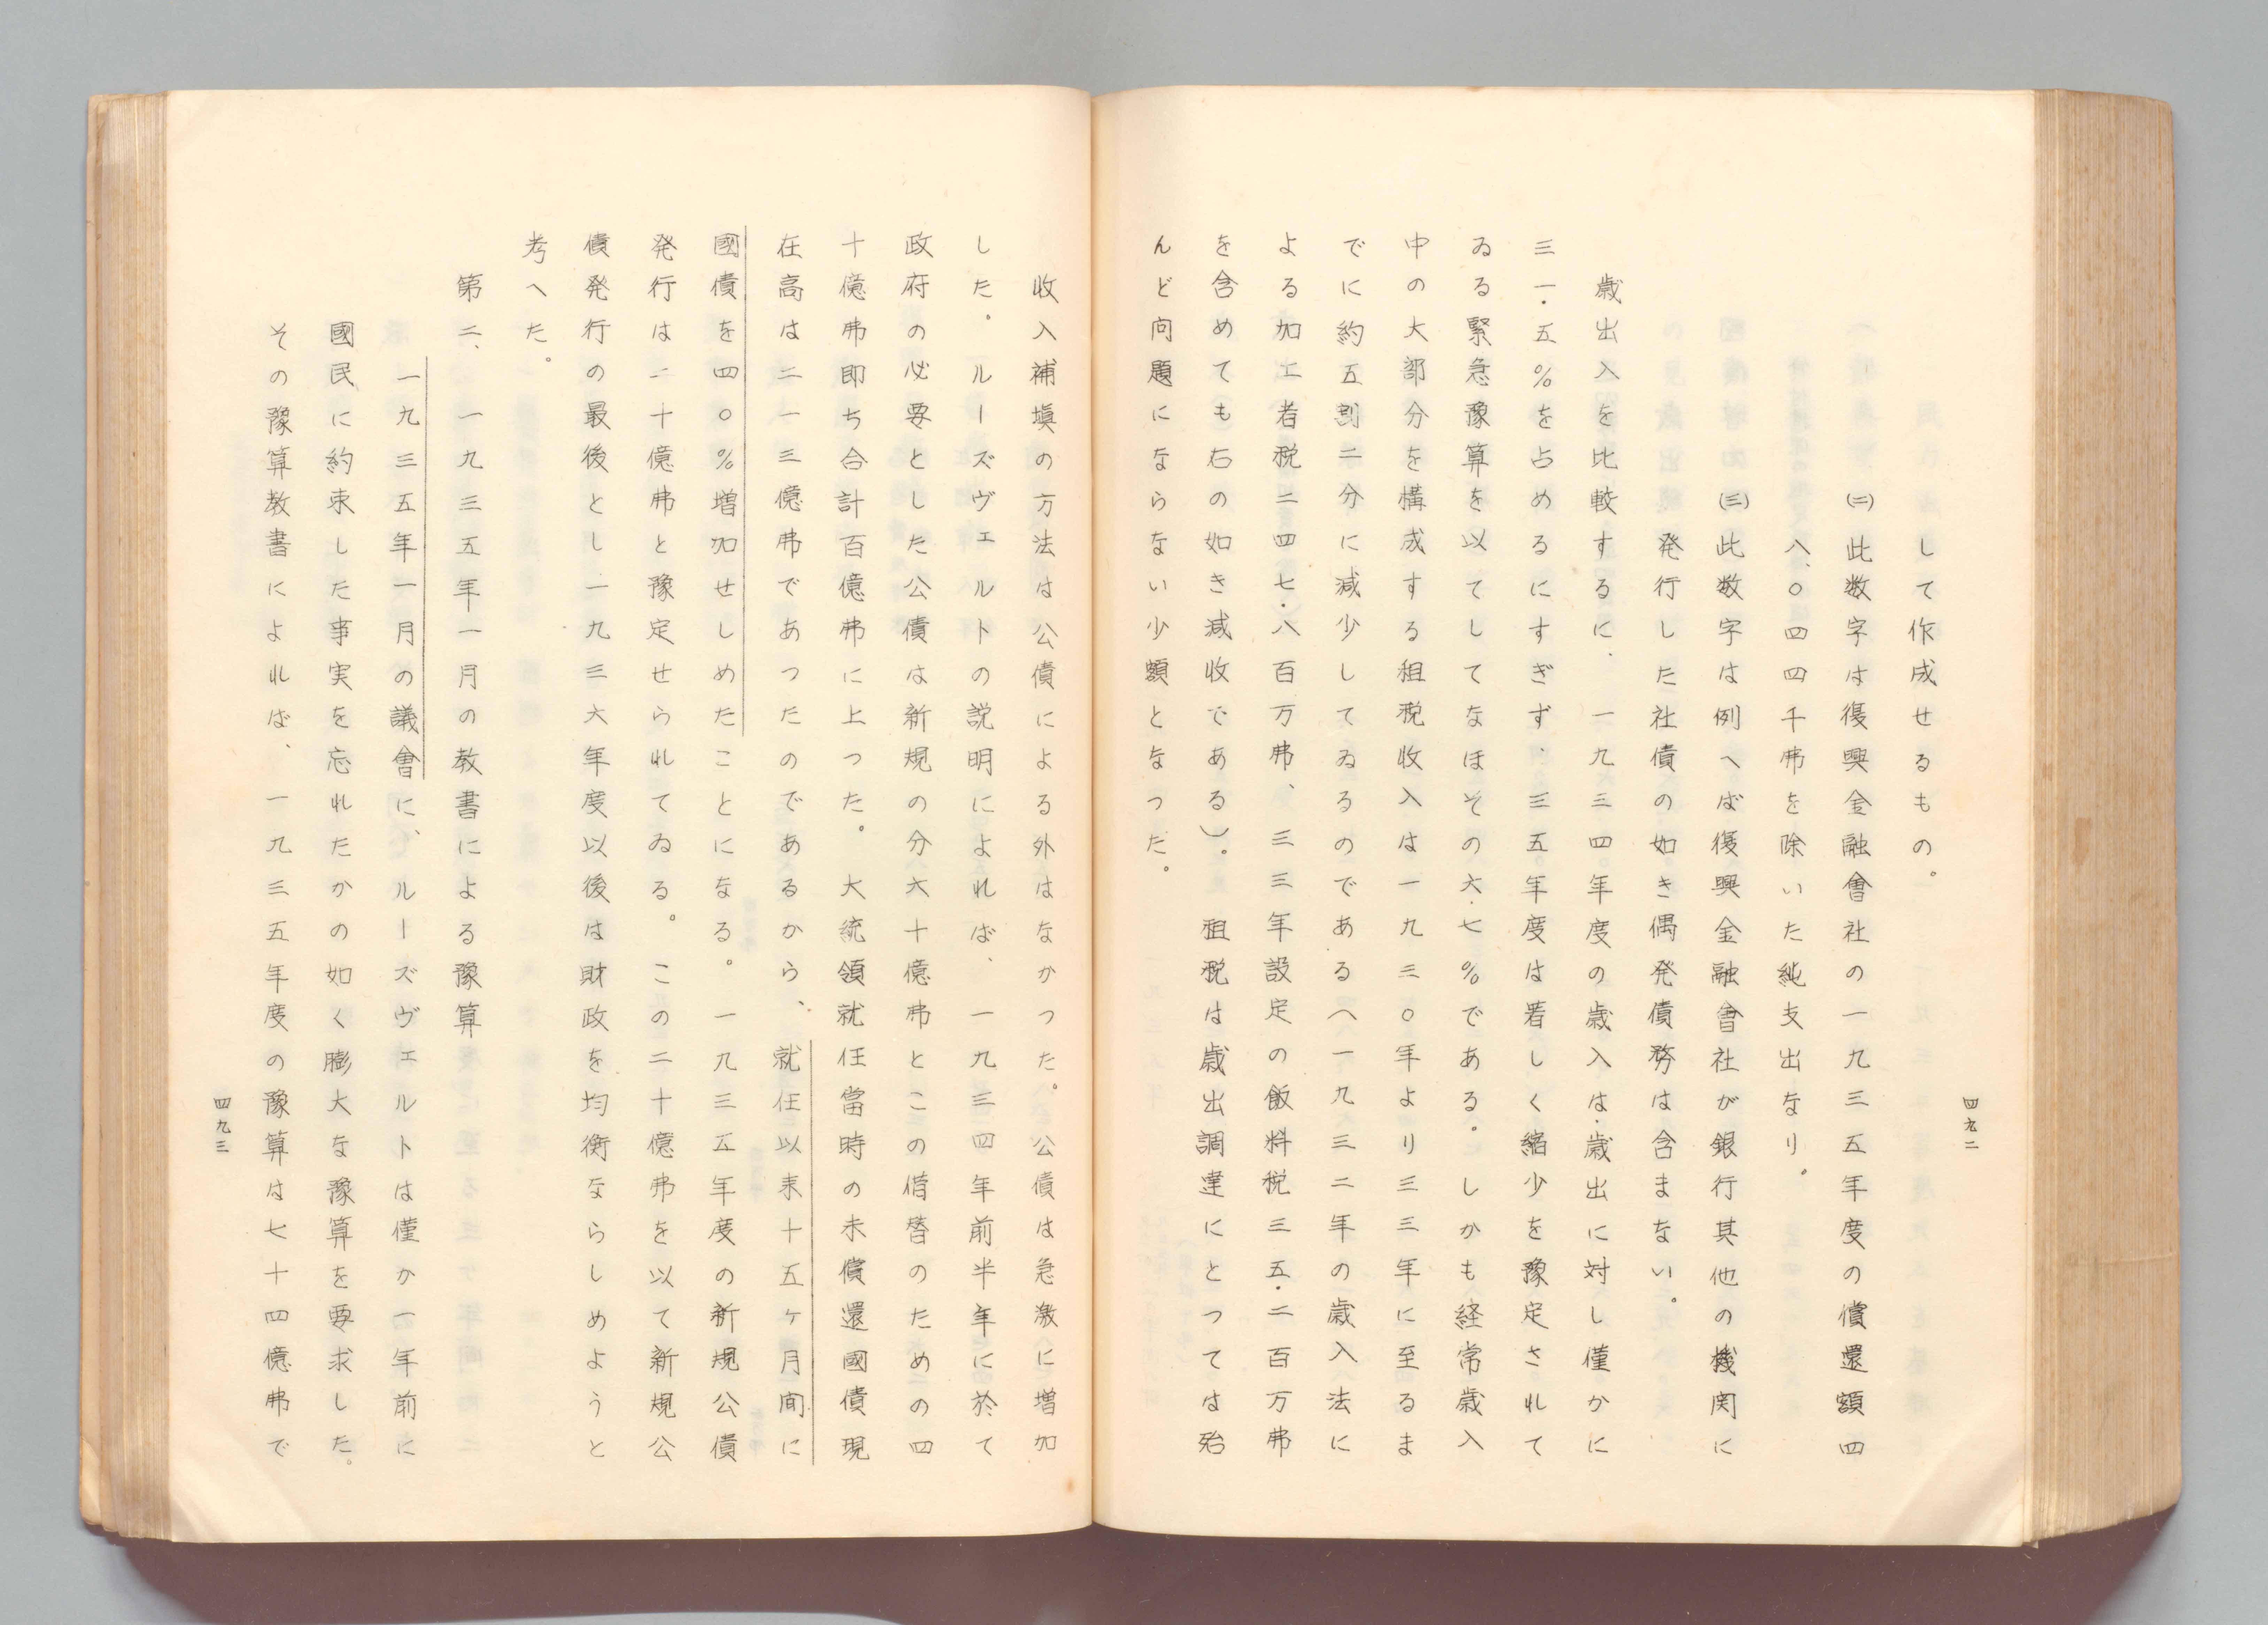 四九二
して作成せるもの。
(二)此数字は復興金融會社の一九三五年度の償還額四
八、〇四四千弗を除いた純支出なり。
(三)此数字は例へば復興金融會社が銀行其他の機関に
発行した社債の如き偶発債務は含まない。
歳出入を比較するに、一九三四年度の歳入は、歳出に対し僅かに
三一・五％を占めるにすぎず、三五年度は著しく縮少を豫定されて
ゐる緊急豫算を以てしてなほその六・七％である。しかも経常歳入
中の大部分を構成する租税収入は一九三〇年より三三年に至るま
でに約五割二分に減少してゐるのである（一九三二年の歳入法に
よる加工者税二四七・八百万弗、三三年設定の飯料税三五・二百万弗
を含めても右の如き減收である）。租税は歳出調達にとつては殆
んど问題にならない少額となつた。
收入補塡の方法は公債による外はなかつた。公債は急激に増加
した。ルーズヴェルトの説明によれば、一九三四年前半年に於て
政府の必要とした公債は新規の分六十億弗とこの借替のための四
十億弗即ち合計百億弗に上つた。大統領就任當時の未償還國債現
在高は二一三億弗であつたのであるから、就任以来十五ヶ月间に
國債を四〇％増加せしめたことになる。一九三五年度の新規公債
発行は二十億弗と豫定せられてゐる。この二十億弗を以て新規公
債発行の最後とし、一九三六年度以後は財政を均衡ならしめようと
考へた。
第二、一九三五年一月の教書による豫算
一九三五年一月の議會に、ルーズヴェルトは僅か一年前に
國民に約束した事実を忘れたかの如く膨大な豫算を要求した。
その豫算教書によれば、一九三五年度の豫算は七十四億弗で
四九三